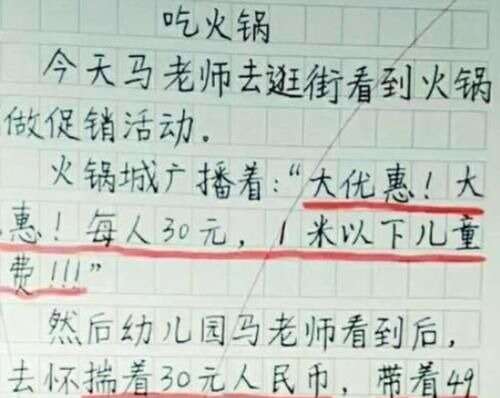 吃火锅
今天马老师去逛街看到火锅
做促销活动.
火锅城广播着:“大优惠!大
惠!每人30元,1米以下儿童
费!!!”
然后幼儿园马老师看到后,
去怀揣着30元人民币,带着49